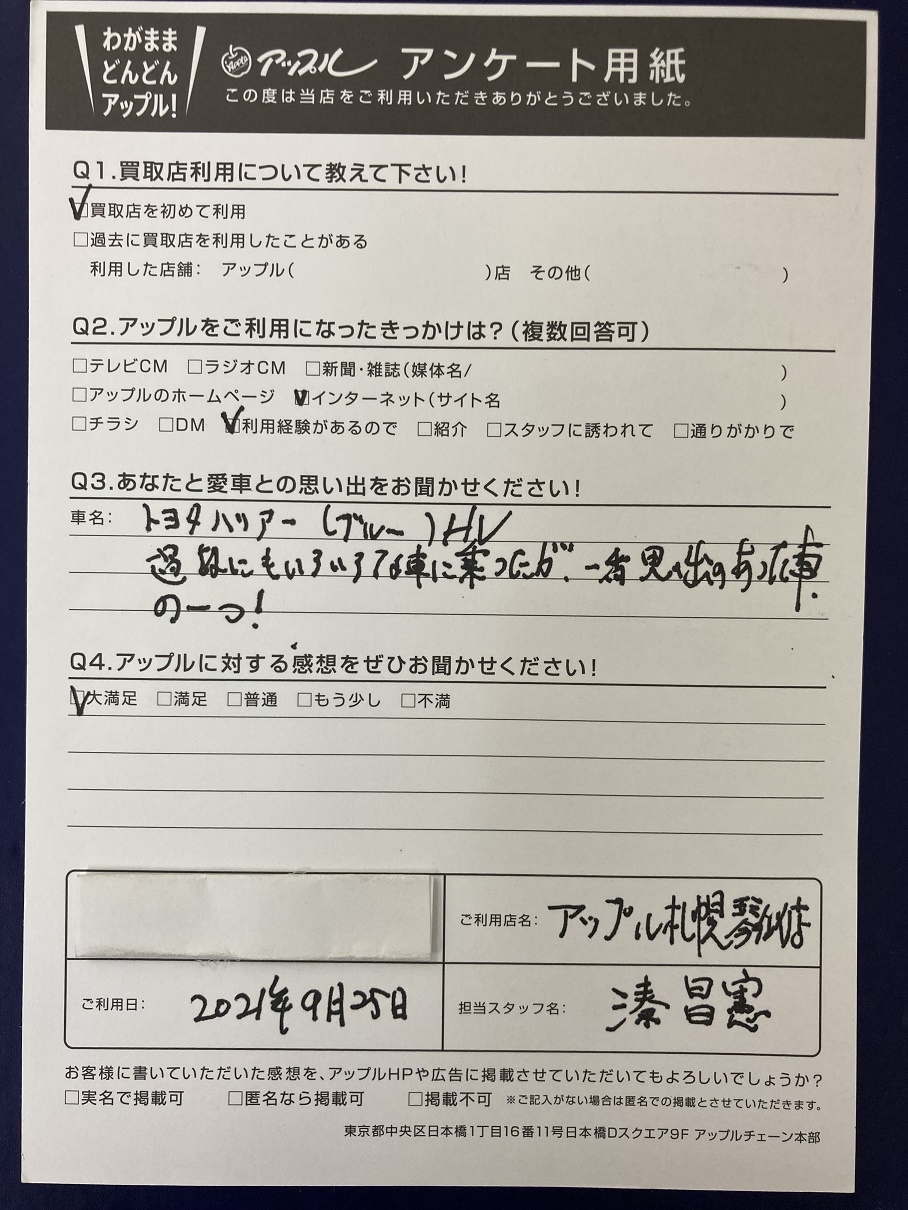 わがまま
どんどん
アップル!
Apple アップル アンケート用紙
この度は当店をご利用いただきありがとうございました。
Q1.買取店利用について教えて下さい!
☑買取店を初めて利用
□過去に買取店を利用したことがある
利用した店舗: アップル( )店 その他( )
Q2.アップルをご利用になったきっかけは?(複数回答可)
□テレビCM □ラジオCM □新聞・雑誌(媒体名/ )
□アップルのホームページ ☑インターネット(サイト名 )
□チラシ □DM ☑利用経験があるので □紹介 □スタッフに誘われて □通りがかりで
Q3.あなたと愛車との思い出をお聞かせください!
車名: トヨタハリアー(ブルー)HV
過去にもいろいろな車に乗ったが、一番思い出のあった車
の一つ!
Q4.アップルに対する感想をぜひお聞かせください!
☑大満足 □満足 □普通 □もう少し □不満
ご利用店名: アップル札幌琴似店
ご利用日: 2021年9月25日
担当スタッフ名: 湊 昌憲
お客様に書いていただいた感想を、アップルHPや広告に掲載させていただいてもよろしいでしょうか?
□実名で掲載可 □匿名なら掲載可 □掲載不可 ※ご記入がない場合は匿名での掲載とさせていただきます。
東京都中央区日本橋1丁目16番11号日本橋Dスクエア9F アップルチェーン本部